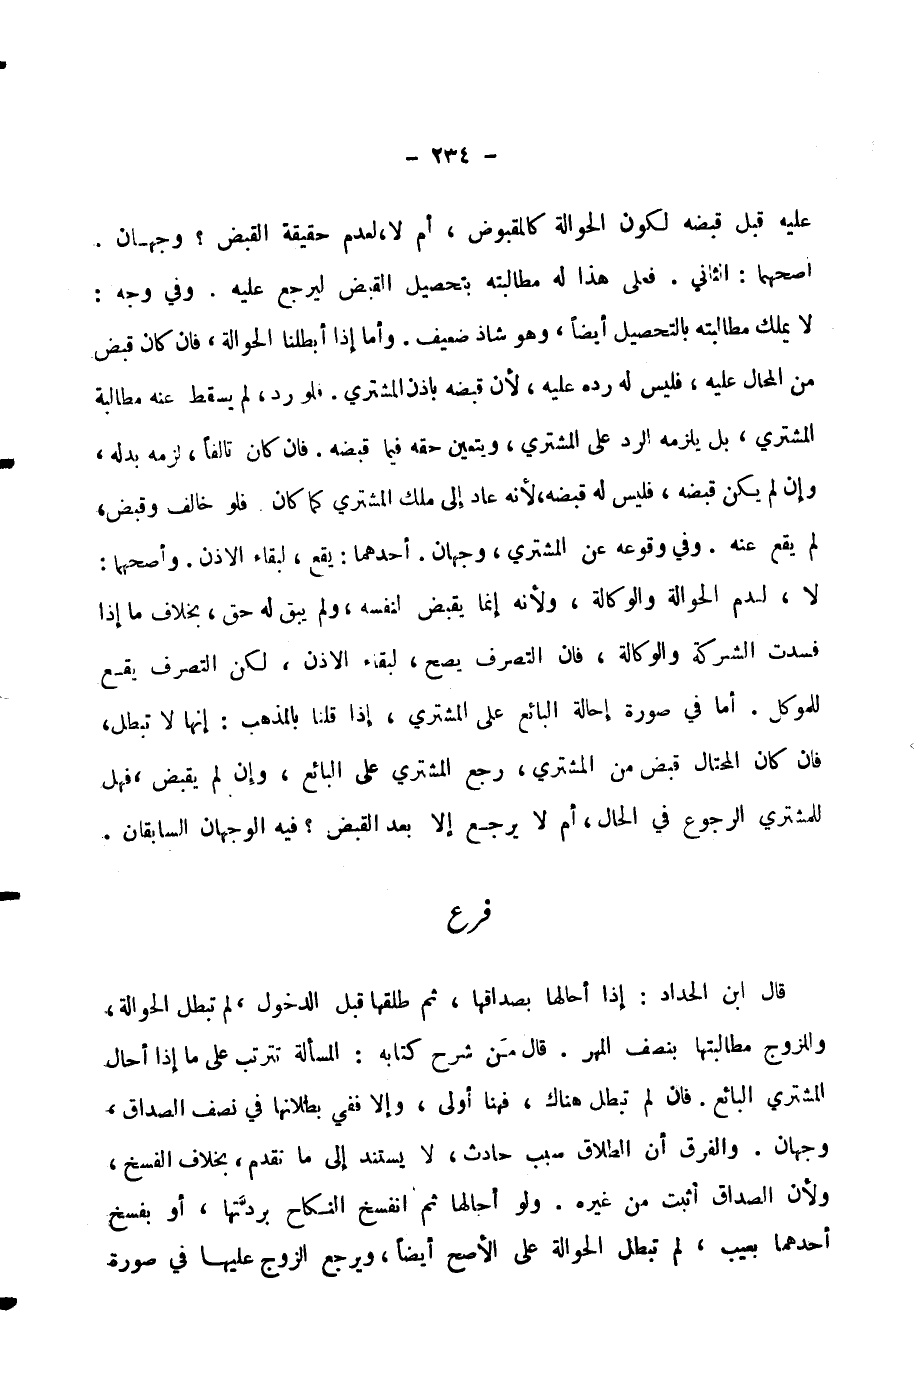 - ٢٣٤ -
عليه قبل قبضه لكون الحوالة كالمقبوض ، أم لا،لعدم حقيقة القبض ؟ وجهان .
أصحهما : الثاني . فعلى هذا له مطالبته بتحصيل القبض ليرجع عليه . وفي وجه :
لا يملك مطالبته بالتحصيل أيضاً ، وهو شاذ ضعيف . وأما إذا أبطلنا الحوالة ، فان كان قبض
من المحال عليه ، فليس له رده عليه ، لأن قبضه باذن المشتري . فلو رد ، لم يسقط عنه مطالبة
المشتري ، بل يلزمه الرد على المشتري ، ويتعين حقه فيما قبضه . فان كان تالفاً ، لزمه بدله ،
وإن لم يكن قبضه ، فليس له قبضه،لأنه عاد إلى ملك المشتري كما كان . فلو خالف وقبض،
لم يقع عنه . وفي وقوعه عن المشتري ، وجهان . أحدهما : يقع ، لبقاء الاذن . وأصحهما :
لا ، لعدم الحوالة والوكالة ، ولأنه إنما يقبض لنفسه ، ولم يبق له حق ، بخلاف ما إذا
فسدت الشركة والوكالة ، فان التصرف يصح ، لبقاء الاذن ، لكن التصرف يقع
للموكل . أما في صورة إحالة البائع على المشتري ، إذا قلنا بالمذهب : إنها لا تبطل،
فان كان المحتال قبض من المشتري ، رجع المشتري على البائع ، وإن لم يقبض ،فهل
للمشتري الرجوع في الحال ، أم لا يرجع إلا بعد القبض ؟ فيه الوجهان السابقان .
فرع
قال ابن الحداد : إذا أحالها بصداقها ، ثم طلقها قبل الدخول ، لم تبطل الحوالة ،
وللزوج مطالبتها بنصف المهر . قال مَن شرح كتابه : المسألة تترتب على ما إذا أحال
المشتري البائع . فان لم تبطل هناك ، فهنا أولى ، وإلا ففي بطلانها في نصف الصداق ،
وجهان . والفرق أن الطلاق سبب حادث ، لا يستند إلى ما تقدم ، بخلاف الفسخ ،
ولأن الصداق أثبت من غيره . ولو أحالها ثم انفسخ النكاح بردَّتها ، أو بفسخ
أحدهما بعيب ، لم تبطل الحوالة على الأصح أيضاً ، ويرجع الزوج عليها في صورة